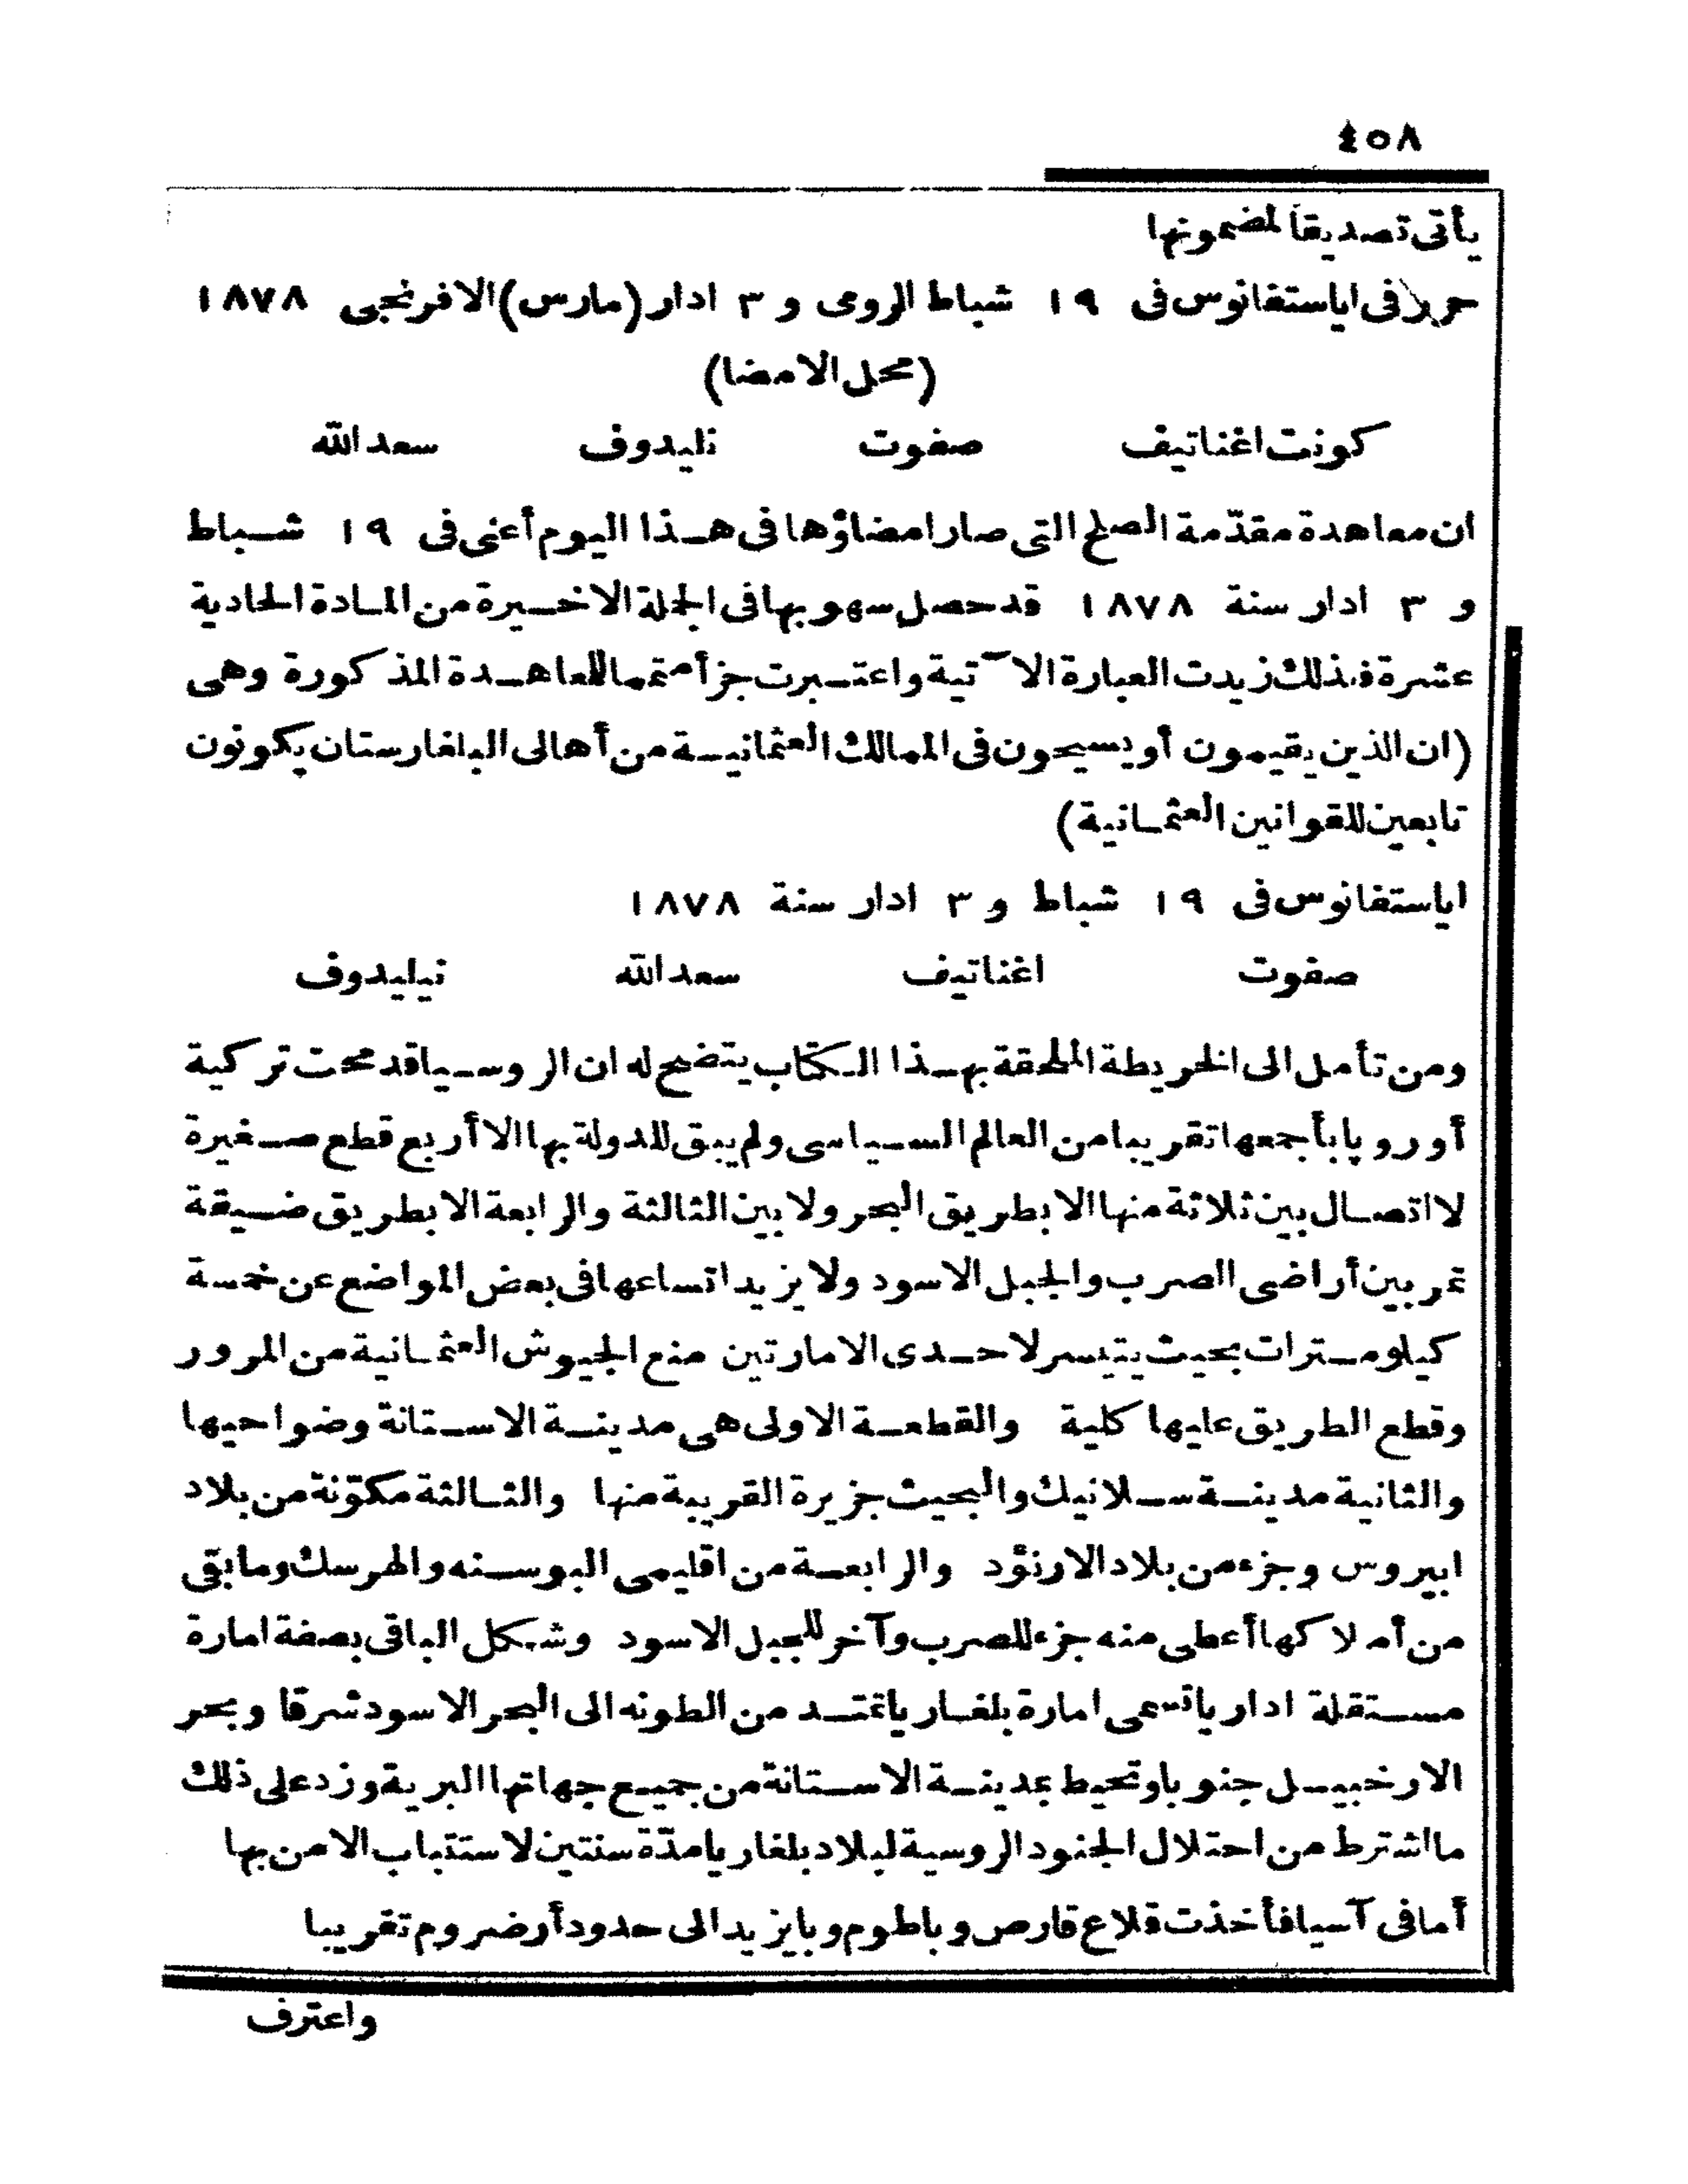 ٤٥٨
يأتى تصديقا لمضمونها
حرر فى اياستفانوس فى ١٩ شباط الرومى و ٣ ادار (مارس) الافرنجى ١٨٧٨
(محل الامضا)
كونت اغناتيف صفوت نليدوف سعد الله
ان معاهدة مقدّمة الصلح التى صار امضاؤها فى هذا اليوم أعنى فى ١٩ شباط
و ٣ ادار سنة ١٨٧٨ قد حصل سهو بها فى الجملة الاخيرة من المادة الحادية
عشرة فذلك زيدت العبارة الآتية واعتبرت جزأ متمما للعاهدة المذكورة وهى
(ان الذين يقيمون أو يسيحون فى الممالك العثمانية من أهالى البلغارستان يكونون
تابعين للقوانين العثمانية)
اياستفانوس فى ١٩ شباط و ٣ ادار سنة ١٨٧٨
صفوت اغناتيف سعد الله نيليدوف
ومن تأمل الى الخريطة الملحقة بهذا الكتاب يتضح له ان الروسيا قد محت تركية
أوروپا بأجمعها تقريبا من العالم السياسى ولم يبق للدولة بها الا أربع قطع صغيرة
لا اتصال بين ثلاثة منها الا بطريق البحر ولا بين الثالثة والرابعة الا بطريق ضيقة
تمر بين أراضى الصرب والجبل الاسود ولا يزيد اتساعها فى بعض المواضع عن خمسة
كيلومترات بحيث يتيسر لاحدى الامارتين منع الجيوش العثمانية من المرور
وقطع الطريق عليها كلية والقطعة الاولى هى مدينة الاستانة وضواحيها
والثانية مدينة سلانيك والبحيث جزيرة القريبة منها والثالثة مكوّنة من بلاد
ابيروس وجزء من بلاد الارنؤد والرابعة من اقليمى البوسنه والهرسك وما بقى
من أملاكها أعطى منه جزء للصرب وآخر للجبل الاسود وشكل الباقى بصفة امارة
مستقلة اداريا تسمى امارة بلغاريا تمتد من الطونه الى البحر الاسود شرقا وبحر
الارخبيل جنوبا وتحيط بمدينة الاستانة من جميع جهاتها البرية وزد على ذلك
ما اشترط من احتلال الجنود الروسية لبلاد بلغاريا مدّة سنتين لاستتباب الامن بها
أما فى آسيا فأخذت قلاع قارص وباطوم وبايزيد الى حدود أرضروم تقريبا
واعترف